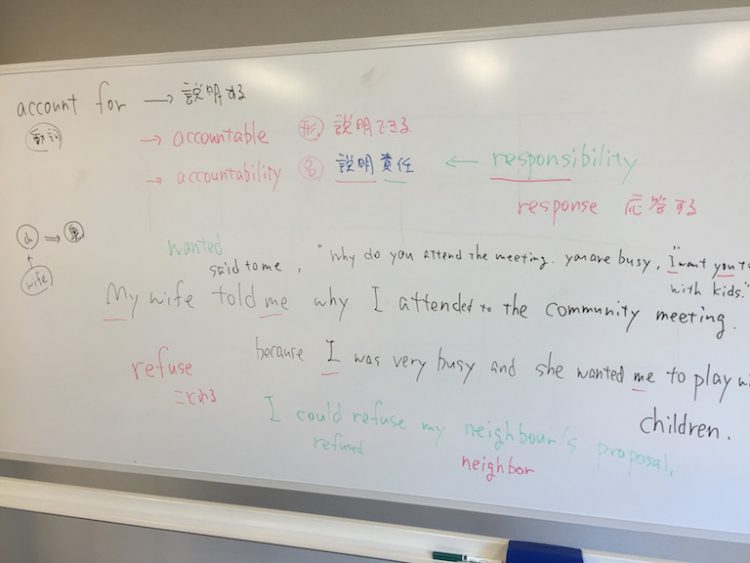 account for → 説明する
動詞
→ accountable 形 説明できる
→ accountability 名 説明責任 ← responsibility
response 応答する
wanted
said to me, "Why do you attend the meeting. you are busy, "I want you t
wife
with kids."
My wife told me why I attended to the community meeting.
because I was very busy and she wanted me to play wi
children.
refuse
ことわる
I could refuse my neighbour's proposal,
refused
neighbor